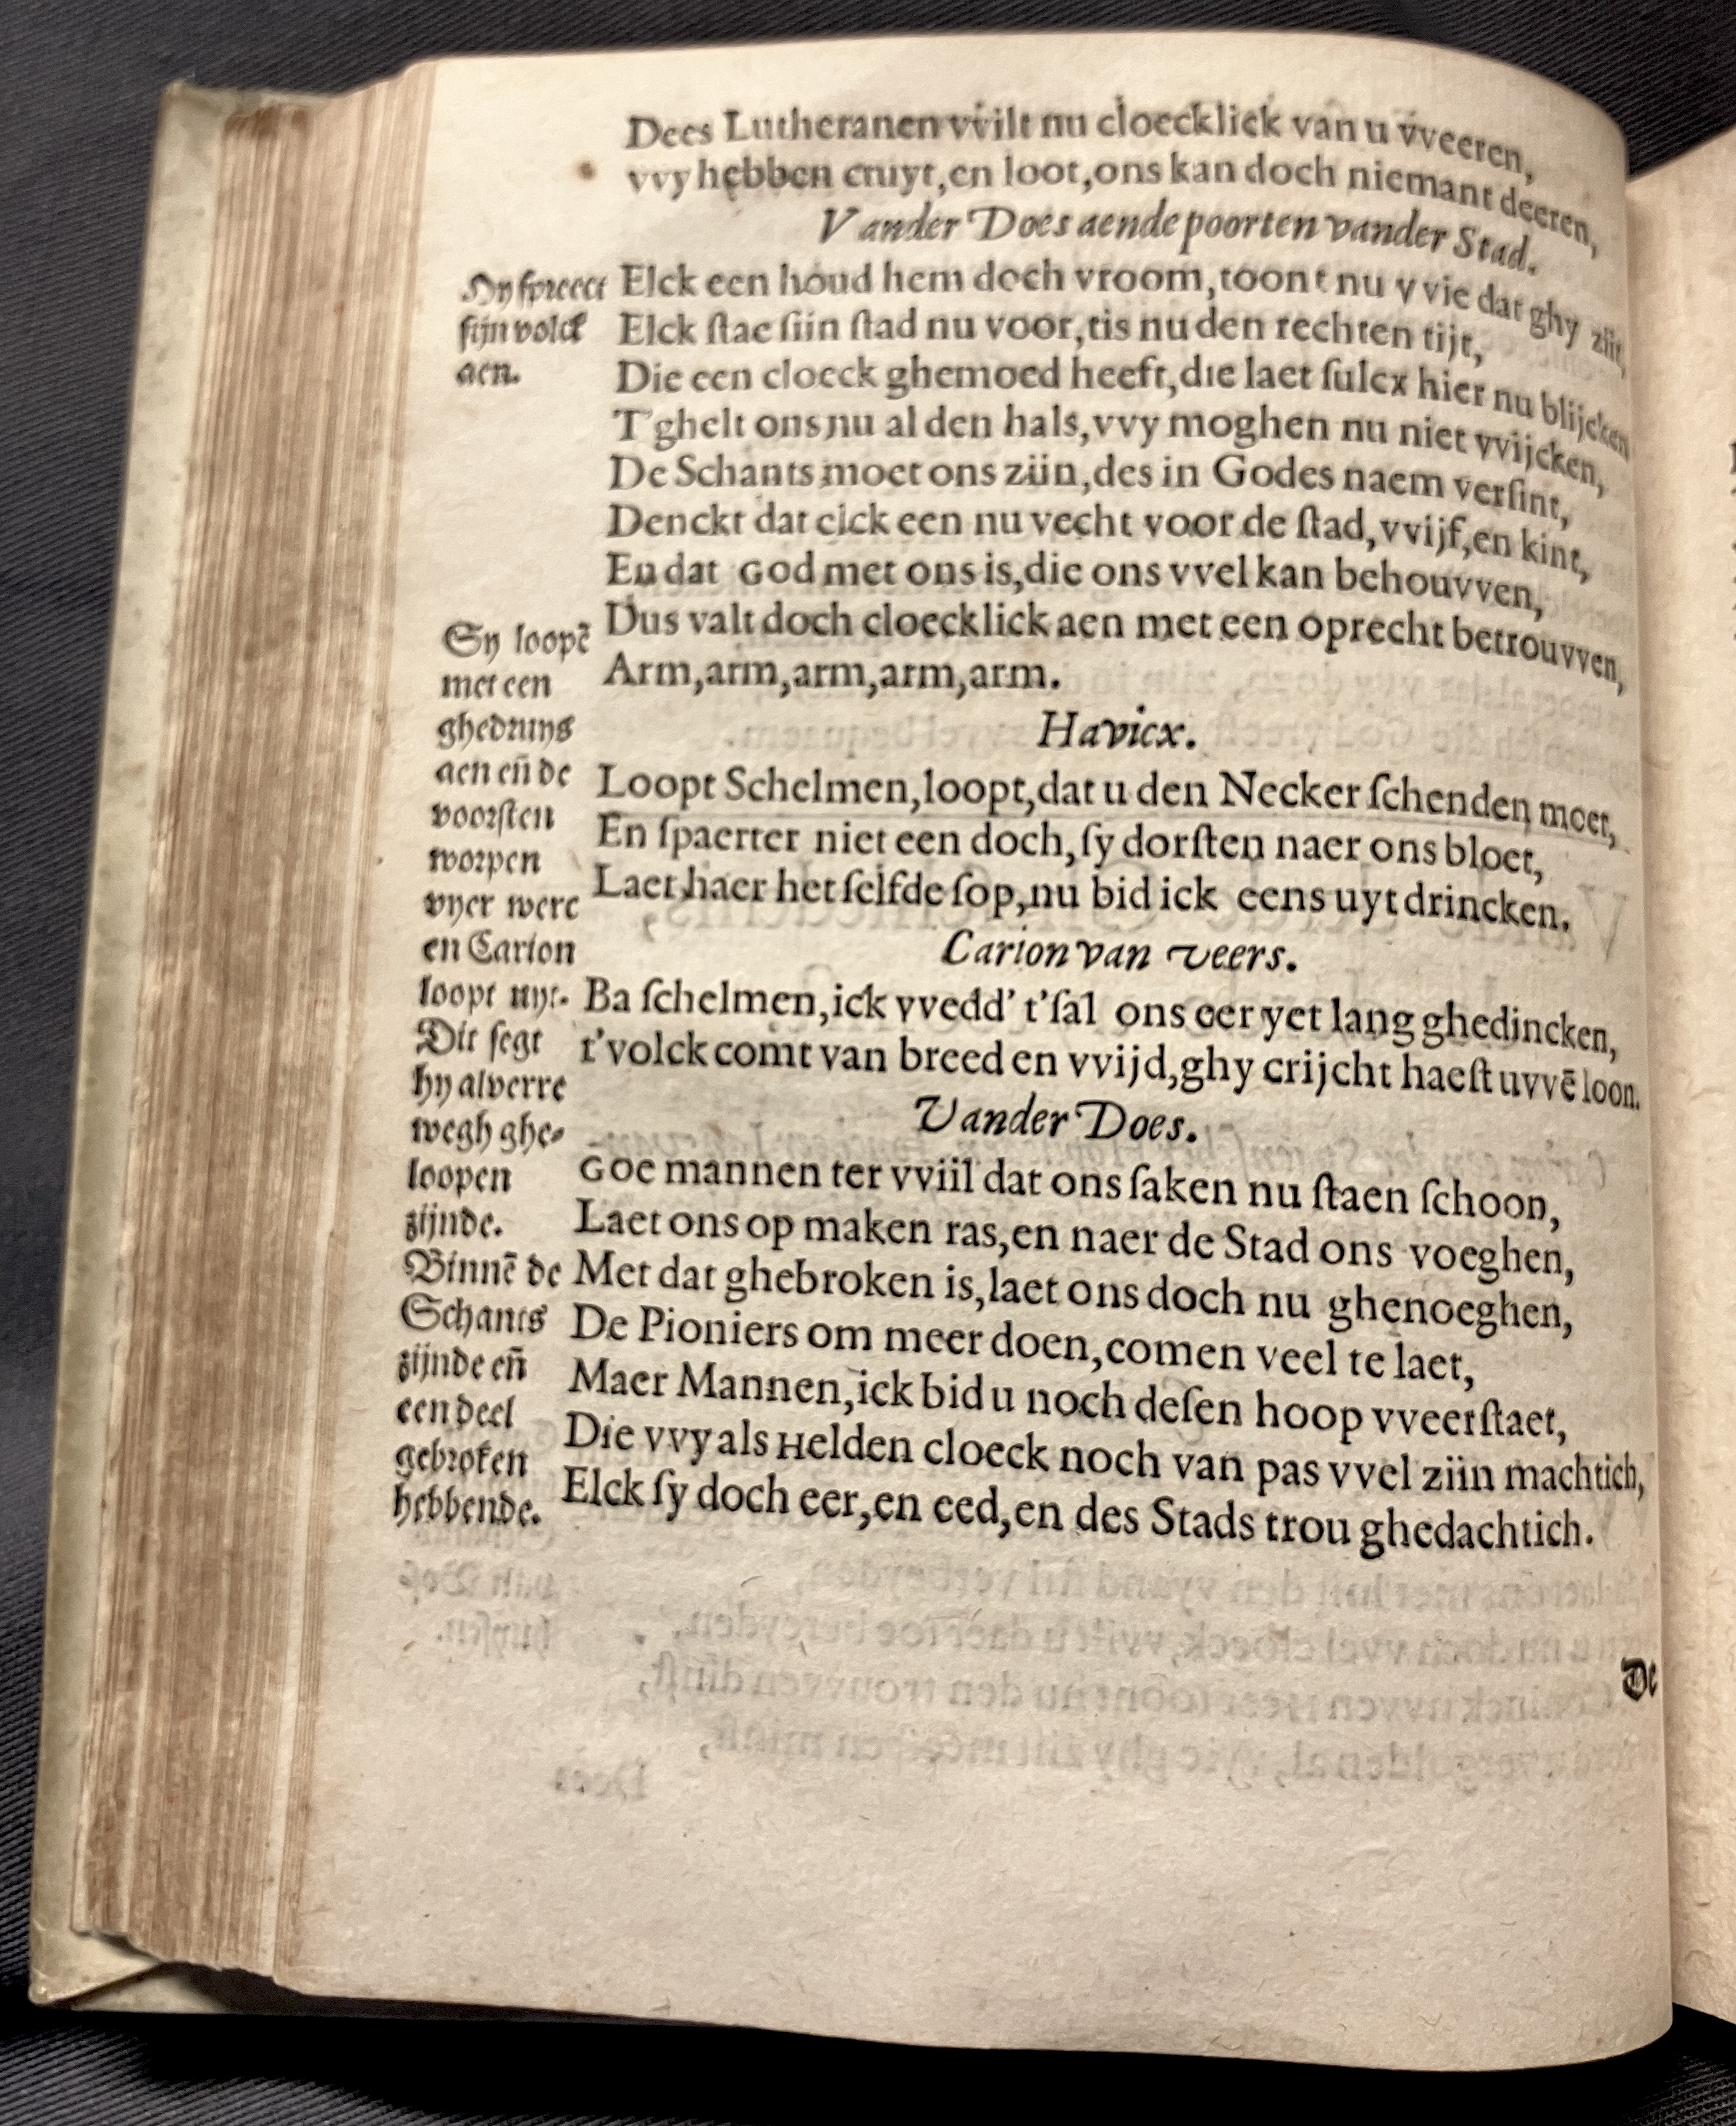 Dees Lutheranen vvilt nu cloecklick van u vveeren,
vvy hebben cruyt,en loot,ons kan doch niemant deeren,
Vander Does aende poorten vander Stad.
Hy spreect
sijn volck
aen.
Elck een houd hem doch vroom,toont nu vvie dat ghy ziit,
Elck ſtae ſiin ſtad nu voor,tis nu den rechten tijt,
Die een cloeck ghemoed heeft,die laet ſulcx hier nu blijcken
T'ghelt ons nu al den hals,vvy moghen nu niet vvijcken,
De Schants moet ons ziin,des in Godes naem verſint,
Denckt dat elck een nu vecht voor de ſtad,vvijf,en kint,
En dat God met ons is,die ons vvel kan behouvven,
Dus valt doch cloecklick aen met een oprecht betrouvven,
Arm,arm,arm,arm,arm.
Sy loopē
met een
ghedruys
aen eñ de
voorſten
worpen
vyer werc
en Carion
loopt uyt.
Havicx.
Loopt Schelmen,loopt,dat u den Necker ſchenden moet,
En ſpaerter niet een doch,ſy dorſten naer ons bloet,
Laet haer het ſelfde ſop,nu bid ick eens uyt drincken.
Carion van Veers.
Ba ſchelmen,ick vvedd' t'ſal ons eer yet lang ghedincken,
t'volck comt van breed en vvijd,ghy crijcht haeſt uvvē loon.
Dit ſegt
hy alverre
wegh ghe-
loopen
zijnde.
Vander Does.
Goe mannen ter vviil dat ons ſaken nu ſtaen ſchoon,
Laet ons op maken ras,en naer de Stad ons voeghen,
Met dat ghebroken is,laet ons doch nu ghenoeghen,
De Pioniers om meer doen,comen veel te laet,
Maer Mannen,ick bid u noch deſen hoop vveerſtaet,
Die vvy als Helden cloeck noch van pas vvel ziin machtich,
Elck ſy doch eer,en eed,en des Stads trou ghedachtich.
Binnē de
Schants
zijnde eñ
een deel
gebroken
hebbende.
De